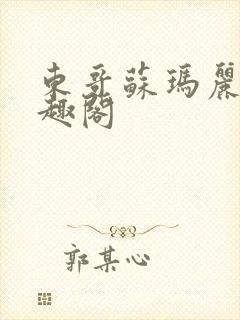 東哥蘇瑪麗
趣閣
郭某心